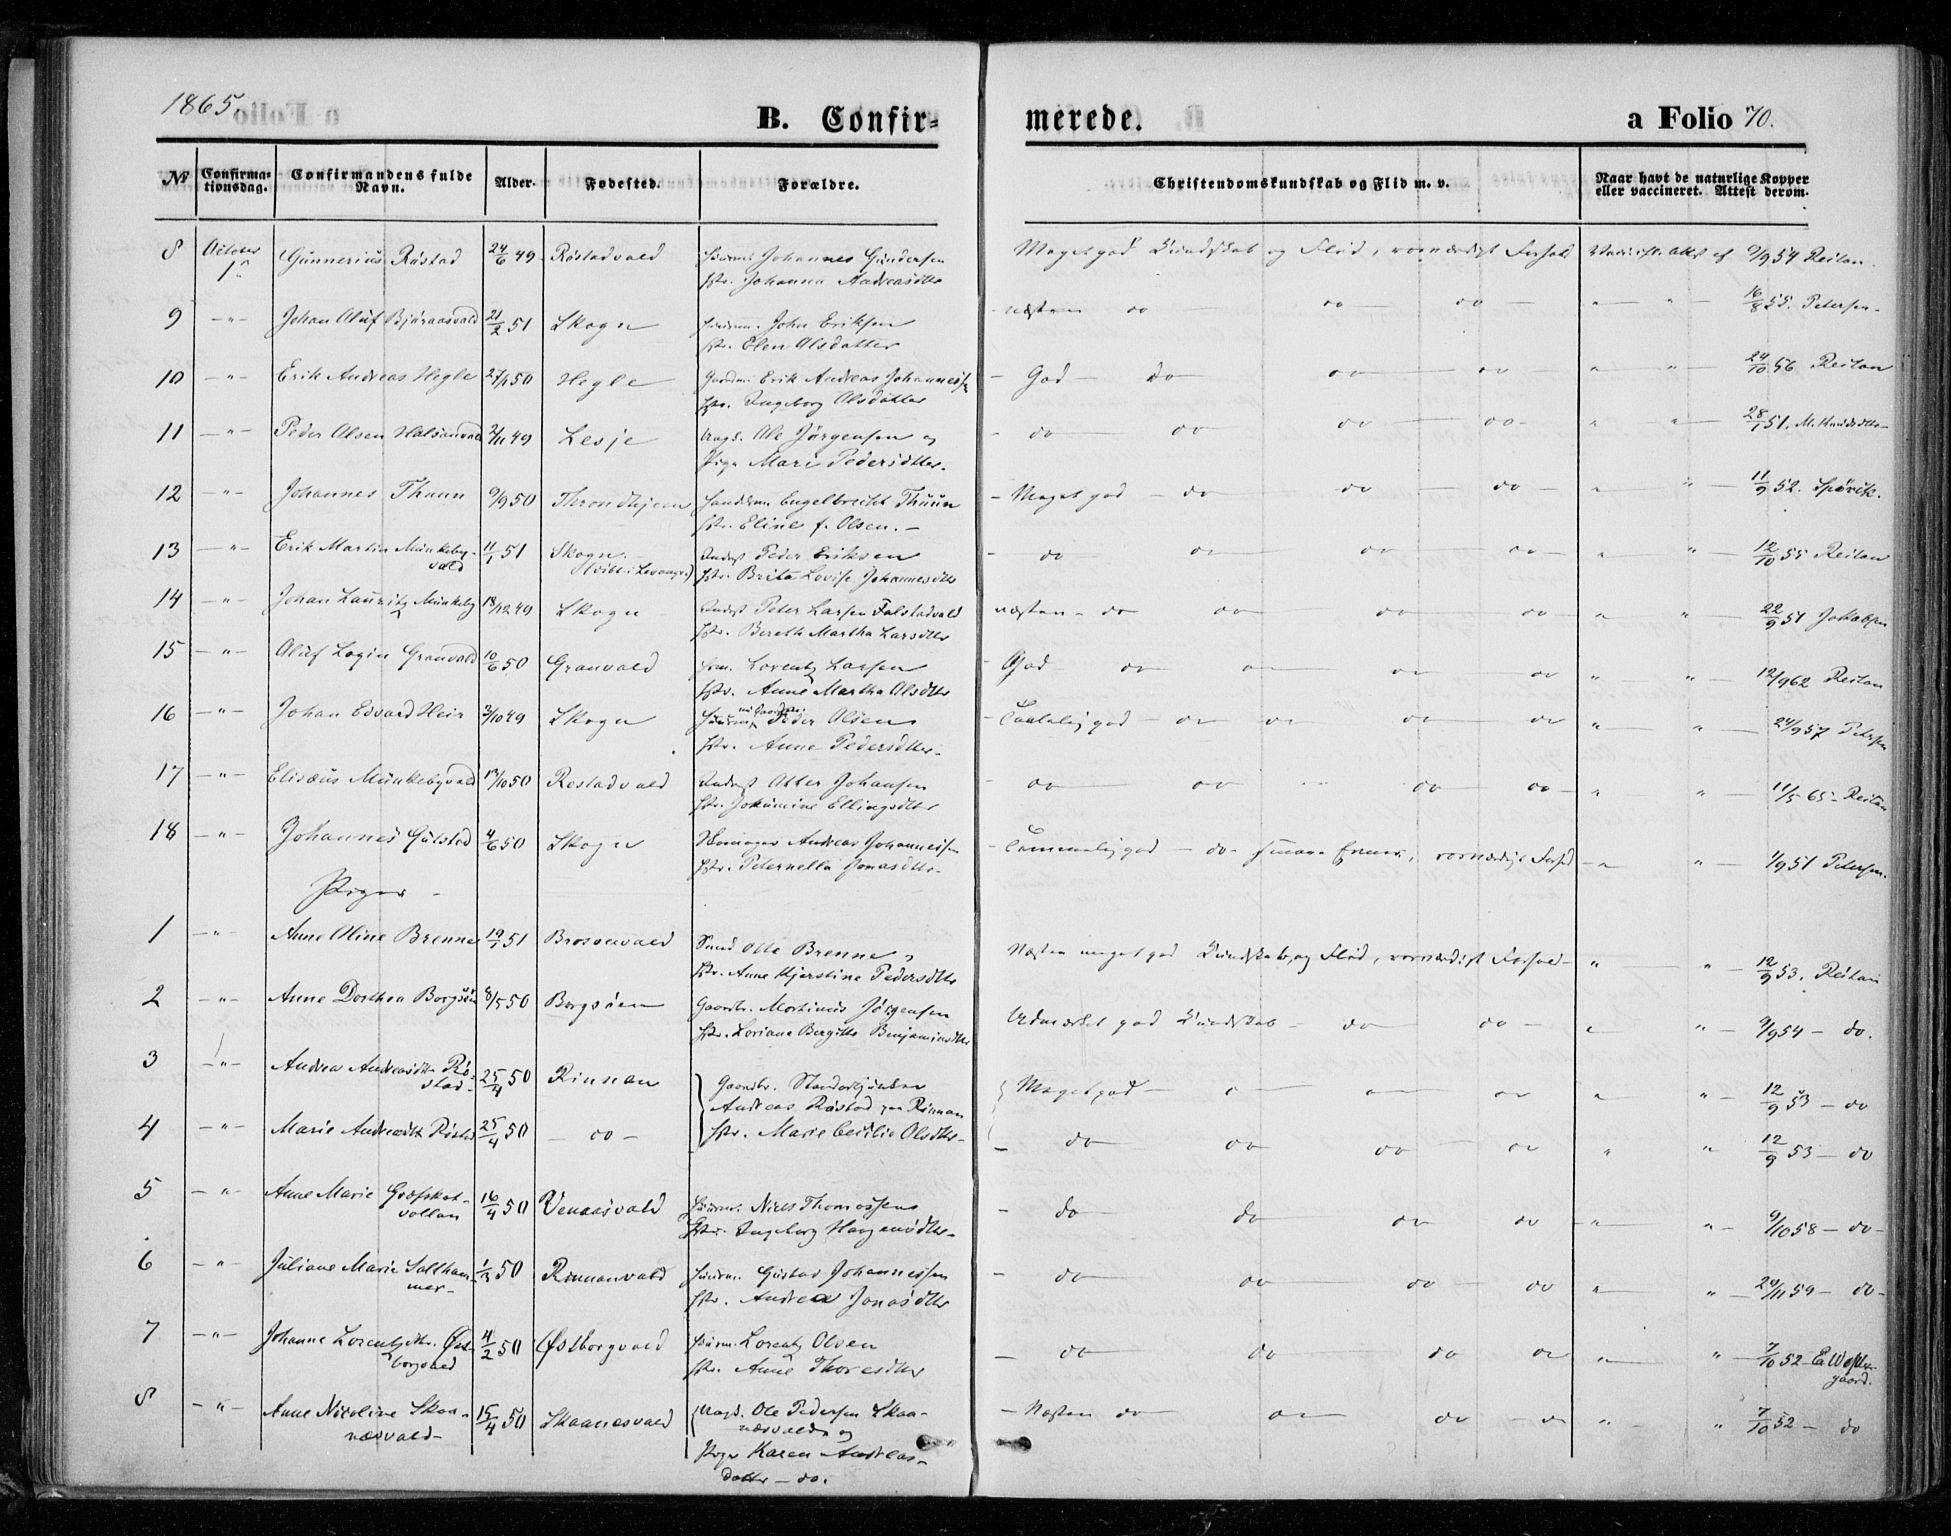 1865.
B. Confir-
merede.
a Folio 70.
№
Confirma-
tionsdag.
Confirmandens fulde
Navn.
Alder.
Fødested.
Forældre.
Christendomskundskab og Flid m. v.
Naar havt de naturlige Kopper
eller vaccineret. Attest derom.
8 October 1ste Gunnerius Røstad 24/6 49 Røstadvald Huusm. Johannes Gundersen Meget god Kundskab og Flid, vorværdigt Forhold Vaccinat. Attest af 9/9 54 Reitan.
Hstr. Johanna Andreasdtr
9 —"— Johan Oluf Bjøraasvald 21/2 51 Skogn Huusm. John Eriksen næsten do — do — do — " " 16/8 55. Petersen.
Hstr. Elen Olsdatter
10 —"— Erik Andreas Hegle 27/1 50 Hegle Gaardm. Erik Andreas Johannessen God — do — do — do " " 24/10 56 Reitan
Hstr. Ingeborg Olsdatter
11 —"— Peder Olsen Halsanvald 2/11 49 Lesje Ungk. Ole Jørgensen og do — do — do — do — " " 28/1 51. M. Knudsdtr
Pige Mari Pedersdtter.
12 —"— Johannes Thuun 9/9 50 Throndhjem Handelsm. Engelbrecht Thuun Meget god — do — do — do — " " 11/9 52.
Hstr. Eline f. Olsen.
13 —"— Erik Martin Munkeby- 11/1 51 Skogn. Inderst Peder Eriksen do — do — do — do — " " 12/10 55 Reitan
vald (døbt i Levanger) Hstr. Brita Lovise Johannesdtr
14 —"— Johan Lauritz Munkeby 18/12 49 Skogn Inderst Peter Larsen Falstadvald næsten — do — do — do — do — " " 22/9 51 Jakobsen
Hstr. Bereth Martha Larsdtr
15 —"— Oluf Login Granvald 10/6 50 Granvald Hsm. Lorentz Larsen God — do — do — do — do " " 12/9 62 Reitan
Hstr. Anne Martha Olsdtr
16 —"— Johan Edvard Heir 3/10 49 Skogn Huusm. Peder Olsen Taalelig god — do — do — do — do " " 24/9 57 Petersen
Hstr. Anne Pedersdtter.
17 —"— Elisæus Munkebyvald 17/10 50 Restadvald Inderst Otter Johansen do — do — do — do — " " 11/5 65 — Reitan
Hstr. Jokumine Ellingsdtr
18 —"— Johannes Gulstad 4/6 50 Skogn Andreas Johannessen Temmelig god — do — smaae Evner, vorværdigt Forhold " " 1/9 51 Petersen.
Hstr. Peternella Jonasdtr.
Piger
1 —"— Anne Oline Brenne 19/1 51 Brosvevald Otto Brenne, Næsten meget god Kundskab og Flid, vorværdigt Forhold — " " 12/9 53. Reitan
Hstr. Anne Kjerstine Pedersdtr
2 —"— Anne Dorthea Borgsøen 8/5 50 Borgsøen Gaardbr. Mortinus Jørgensen Udmærket god Kundskab — do — do — " " 9/9 54 — do.
Hstr. Loriane Bergitte Benjaminsdtr
3 —"— Andrea Andreasdtr Rø- 25/4 50 Rinnan Gaardbr. Meget god — do — do — do " " 12/9 53 — do
stad Andreas Røstad paa Rinnan
4 —"— Marie Andreasdtr Røstad 25/4 50 — do — Hstr. Marie Cecilie Olsdtr. do — do — do — do " " 12/9 53 — do
5 —"— Anne Marie Græskat- 16/4 50 Venaasvald Huusm. Niels Thomassen do — do — do — do " " 9/10 58 — do —
vollan Hstr. Ingeborg Haagensdtr.
6 —"— Juliane Marie Saltham- 1/3 50 Rinnanvald Huusm. Gustav Johannessen do — do — do — do " " 20/11 59 — do —
mer Hstr. Andrea Jonasdtr
7 —"— Johanne Lorentzdtr. Øst- 4/2 50 Østborgvald Huusm. Lorentz Olsen do — do — do — do " " 7/10 52 — E. Wester-
borgvald Hstr. Anne Thoresdtr gaard.
8 —"— Anne Nicoline Skaa- 15/4 50 Skaanesvald Ungk. Ole Pedersen Skaa- Næsten do — do — do — do " " 7/10 52 — do
næsvald næsvald og
Pige Karen Andreas-
datter — do.